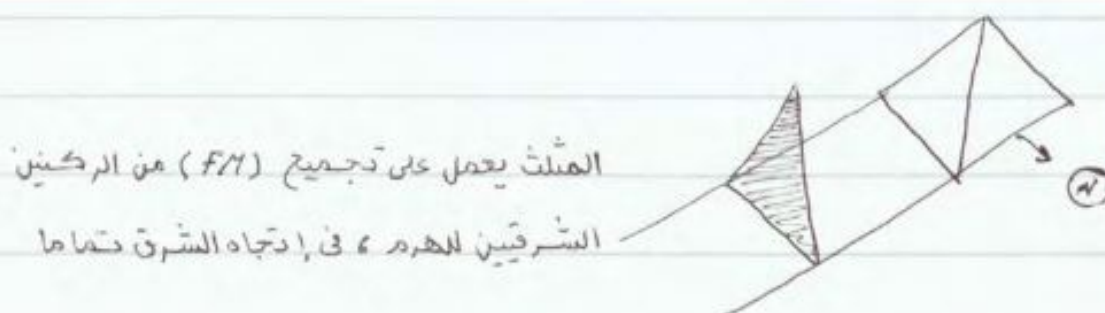 المثلث يعمل على تجميع (FM) من الركنين
الشرقيين للهرم ، فى إتجاه الشرق تماما
N